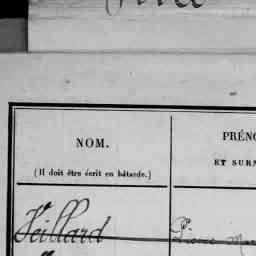 NOM.
(Il doit être écrit en bâtarde.)
PRÉNO
ET SURN
Veillard
Pierre Mar